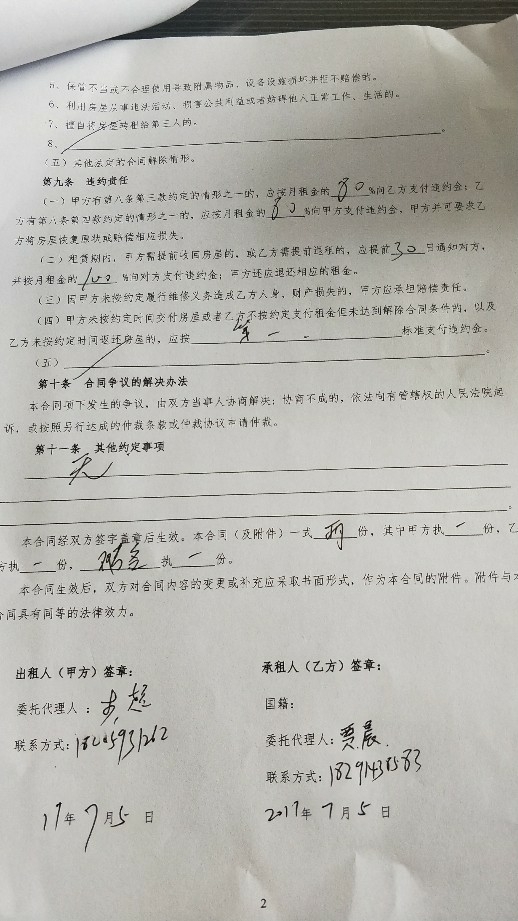 5、保管不当或不合理使用导致附属物品、设备设施损坏并拒不赔偿的。
6、利用房屋从事违法活动、损害公共利益或者妨碍他人正常工作、生活的。
7、擅自将房屋转租给第三人的。
8、
(五)其他法定的合同解除情形。
第九条 违约责任
(一)甲方有第八条第三款约定的情形之一的,应按月租金的 80 %向乙方支付违约金;乙
方有第八条第四款约定的情形之一的,应按月租金的 80 %向甲方支付违约金,甲方并可要求乙
方将房屋恢复原状或赔偿相应损失。
(二)租赁期内,甲方需提前收回房屋的,或乙方需提前退租的,应提前 30 日通知对方,
并按月租金的 100 %向对方支付违约金;甲方还应退还相应的租金。
(三)因甲方未按约定履行维修义务造成乙方人身、财产损失的,甲方应承担赔偿责任。
(四)甲方未按约定时间交付房屋或者乙方不按约定支付租金但未达到解除合同条件的,以及
乙方未按约定时间返还房屋的,应按 标准支付违约金。
(五)
第十条 合同争议的解决办法
本合同项下发生的争议,由双方当事人协商解决;协商不成的,依法向有管辖权的人民法院起
诉,或按照另行达成的仲裁条款或仲裁协议申请仲裁。
第十一条 其他约定事项
无
本合同经双方签字盖章后生效。本合同(及附件)一式 两 份,其中甲方执 一 份,乙
方执 一 份, 执 一 份。
本合同生效后,双方对合同内容的变更或补充应采取书面形式,作为本合同的附件。附件与本
合同具有同等的法律效力。
出租人(甲方)签章:
承租人(乙方)签章:
国籍:
委托代理人:
委托代理人:贾晨
联系方式:18205931262
联系方式:18291438583
17年7月5日
2017年7月5日
2